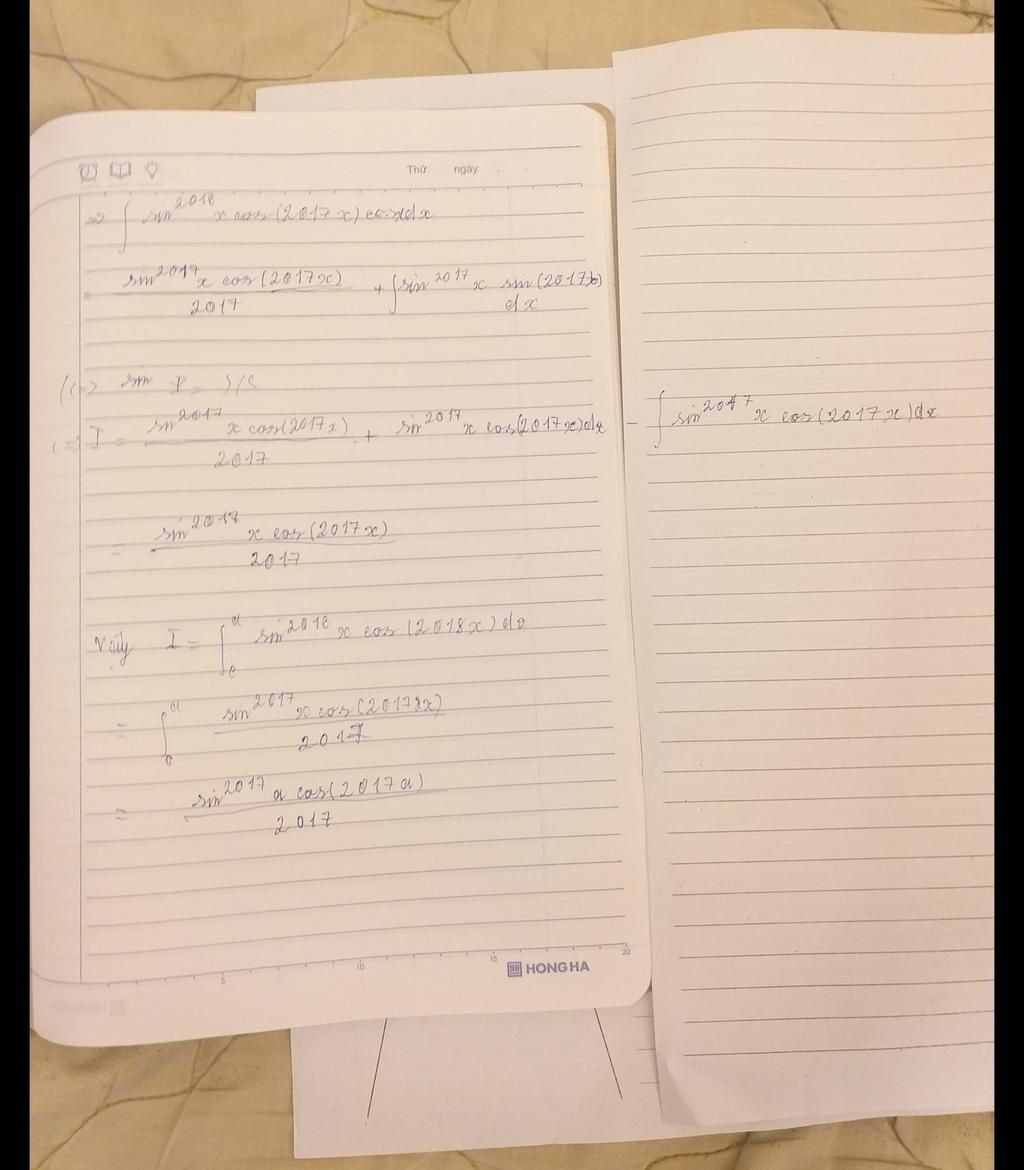 Thứ ngày
=> ∫ sin^2018 x cos(2017x) cosx dx
= sin^2017 x cos(2017x) / 2017 + ∫ sin^2017 x sin(2017x) dx
I =
(=> I = sin^2017 x cos(2017x) / 2017 + sin^2017 x cos(2017x)dx - ∫ sin^2017 x cos(2017x)dx
= sin^2017 x cos(2017x) / 2017
Vậy I = ∫ sin^2016 x cos(2018x)
= ∫ sin^2017 x / 2017
= sin^2017 a cos(2017a) / 2017
5 10 15 20
HONG HA